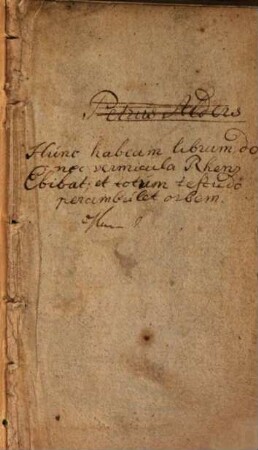 Petrus Alders
Hunc habeam librum do
nec vermicula Rhenū
Ebibat, et totum testudo
perambulet orbem.